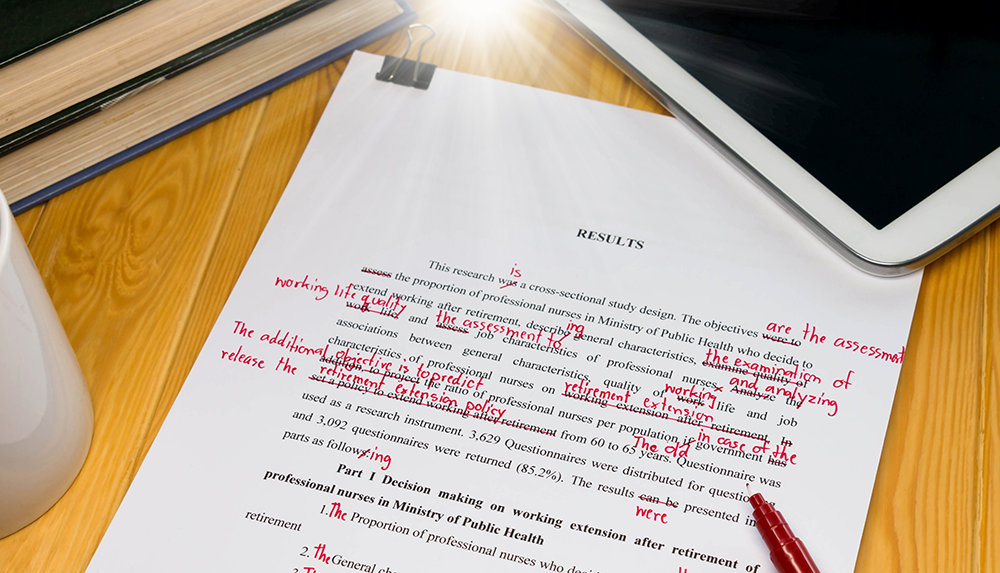 RESULTS
is
This research was a cross-sectional study design. The objectives were to
are the assessment
assess the proportion of professional nurses in Ministry of Public Health who decide to
working life quality
ing
extend working after retirement, describe general characteristics, examine quality of
the assessment to
the examination of
work life, and assess job characteristics of professional nurses. Analyze the
and analyzing
working
associations between general characteristics, quality of work life and job
The additional objective is to predict
retirement extension
characteristics of professional nurses on working extension after retirement. In
release the retirement extension policy
in case of the
addition, to project the ratio of professional nurses per population if government has
The old
set a policy to extend working after retirement from 60 to 65 years. Questionnaire was
used as a research instrument. 3,629 Questionnaires were distributed for
and 3,092 questionnaires were returned (85.2%). The results can be presented in
were
parts as follow
ing
Part I Decision making on working extension after retirement of
professional nurses in Ministry of Public Health
1. The Proportion of professional nurses who
retirement
2. The General